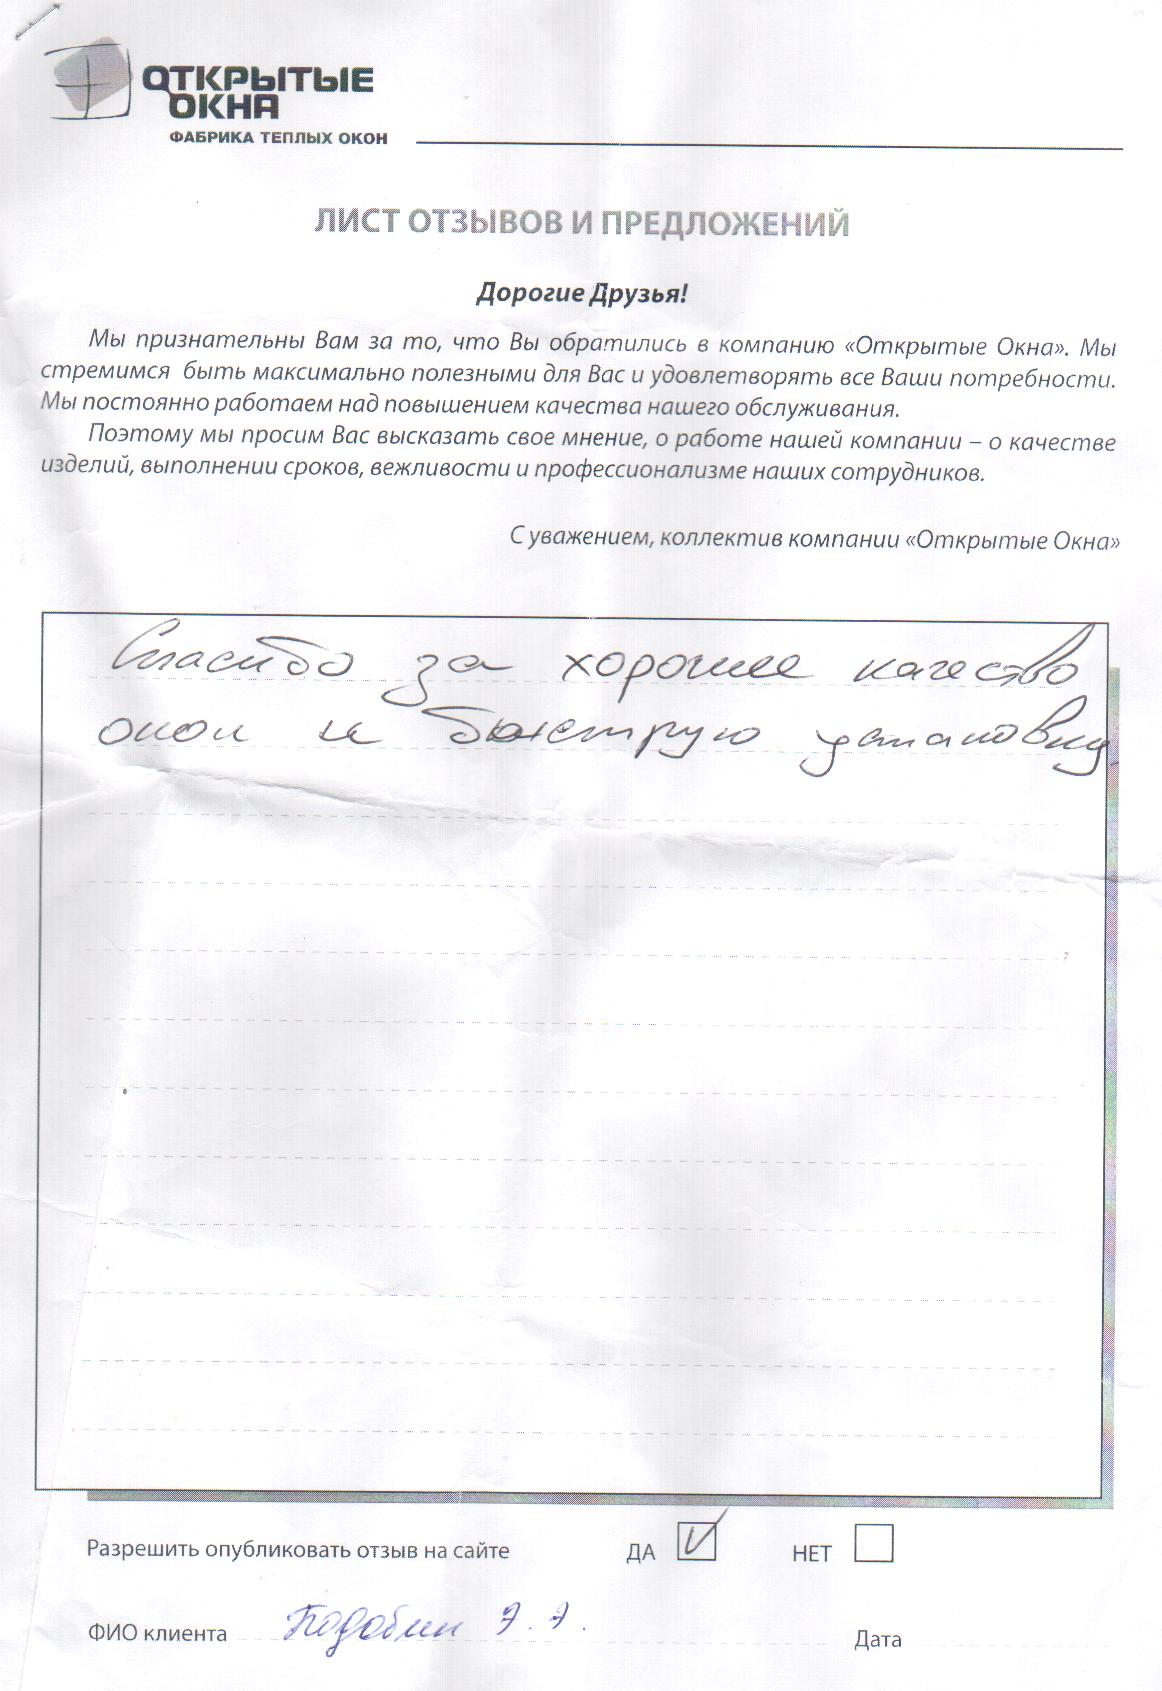 ОТКРЫТЫЕ
ОКНА
ФАБРИКА ТЕПЛЫХ ОКОН
ЛИСТ ОТЗЫВОВ И ПРЕДЛОЖЕНИЙ
Дорогие Друзья!
Мы признательны Вам за то, что Вы обратились в компанию «Открытые Окна». Мы
стремимся быть максимально полезными для Вас и удовлетворять все Ваши потребности.
Мы постоянно работаем над повышением качества нашего обслуживания.
Поэтому мы просим Вас высказать свое мнение, о работе нашей компании – о качестве
изделий, выполнении сроков, вежливости и профессионализме наших сотрудников.
С уважением, коллектив компании «Открытые Окна»
Спасибо за хорошее качество
окон и быструю установку.
Разрешить опубликовать отзыв на сайте ДА НЕТ
ФИО клиента Подобин Э. Э. Дата